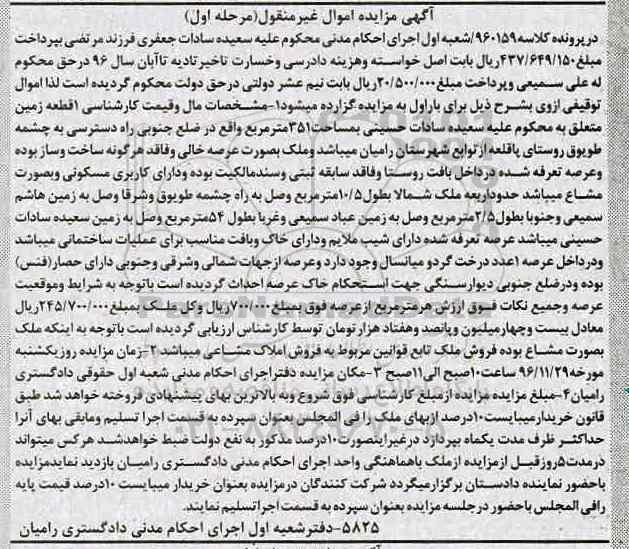 آگهی مزایده اموال غیرمنقول(مرحله اول)
درپرونده کلاسه۹۶۰۱۵۹/شعبه اول اجرای احکام مدنی محکوم علیه سعیده سادات جعفری فرزند مرتضی بپرداخت
مبلغ۴۳۷/۶۴۹/۱۵۰ریال بابت اصل خواسته وهزینه دادرسی وخسارت تاخیرتادیه تاآبان سال ۹۶ درحق محکوم
له علی سمیعی وپرداخت مبلغ۲۰/۵۰۰/۰۰۰ریال بابت نیم عشر دولتی درحق دولت محکوم گردیده است لذا اموال
توقیفی ازوی بشرح ذیل برای باراول به مزایده گزارده میشود۱-مشخصات مال وقیمت کارشناسی ۱قطعه زمین
متعلق به محکوم علیه سعیده سادات حسینی بمساحت۳۵۱مترمربع واقع در ضلع جنوبی راه دسترسی به چشمه
طوبوق روستای پاقلعه ازتوابع شهرستان رامیان میباشد وملک بصورت عرصه خالی وفاقد هرگونه ساخت وساز بوده
وعرصه تعرفه شده درداخل بافت روستا وفاقد سابقه ثبتی وسندمالکیت بوده ودارای کاربری مسکونی وبصورت
مشاع میباشد حدوداربعه ملک شمالا بطول۱۰/۵مترمربع وصل به راه چشمه طوبوق وشرقا وصل به زمین هاشم
سمیعی وجنوبا بطول۲/۵مترمربع وصل به زمین عباد سمیعی وغربا بطول ۵۴مترمربع وصل به زمین سعیده سادات
حسینی میباشد عرصه تعرفه شده دارای شیب ملایم ودارای خاک وبافت مناسب برای عملیات ساختمانی میباشد
ودرداخل عرصه ۱عدد درخت گردو میانسال وجود دارد وعرصه ازجهات شمالی وشرقی وجنوبی دارای حصار(فنس)
بوده ودرضلع جنوبی دیوارسنگی جهت استحکام خاک عرصه احداث گردیده است باتوجه به شرایط وموقعیت
عرصه وجمیع نکات فوق ارزش هرمترمربع ازعرصه فوق مبلغ۷۰۰/۰۰۰ریال وکل ملک بمبلغ۲۴۵/۷۰۰/۰۰۰ریال
معادل بیست وچهارمیلیون وپانصد وهفتاد هزارتومان توسط کارشناس ارزیابی گردیده است باتوجه به اینکه ملک
بصورت مشاع بوده فروش ملک تابع قوانین مربوط به فروش املاک مشاعی میباشد ۲-زمان مزایده روزیکشنبه
مورخه۹۶/۱۱/۲۹ ساعت۱۰صبح الی۱۱صبح ۳-مکان مزایده دفتراجرای احکام مدنی شعبه اول حقوقی دادگستری
رامیان۴-مبلغ مزایده مزایده ازمبلغ کارشناسی فوق شروع وبه بالاترین بهای پیشنهادی فروخته خواهد شد طبق
قانون خریدارمیبایست۱۰درصد ازبهای ملک را فی المجلس بعنوان سپرده به قسمت اجرا تسلیم ومابقی بهای آنرا
حداکثر ظرف مدت یکماه بپردازد درغیراینصورت۱۰درصد مذکور به نفع دولت ضبط خواهدشد هرکس میتواند
ذرمدت۵روزقبل ازمزایده ازملک باهماهنگی واحد اجرای احکام مدنی دادگستری رامیان بازدید نماید مزایده
باحضور نماینده دادستان برگزارمیگردد شرکت کنندگان درمزایده بعنوان خریدار میبایست ۱۰درصد قیمت پایه
رافی المجلس باحضور درجلسه مزایده بعنوان سپرده به قسمت اجراتسلیم نمایند.
۵۸۲۵-دفترشعبه اول اجرای احکام مدنی دادگستری رامیان